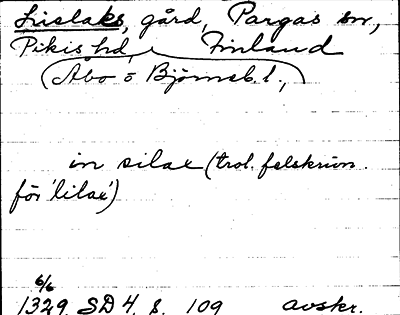 Lislaks, gård, Pargas sn,
Pikis hd, Finland
(Åbo o Björneb. l.,)
in silax (trol. felskrivn.
för 'lilax')
6/6
1329 SD 4. s. 109 avskr.